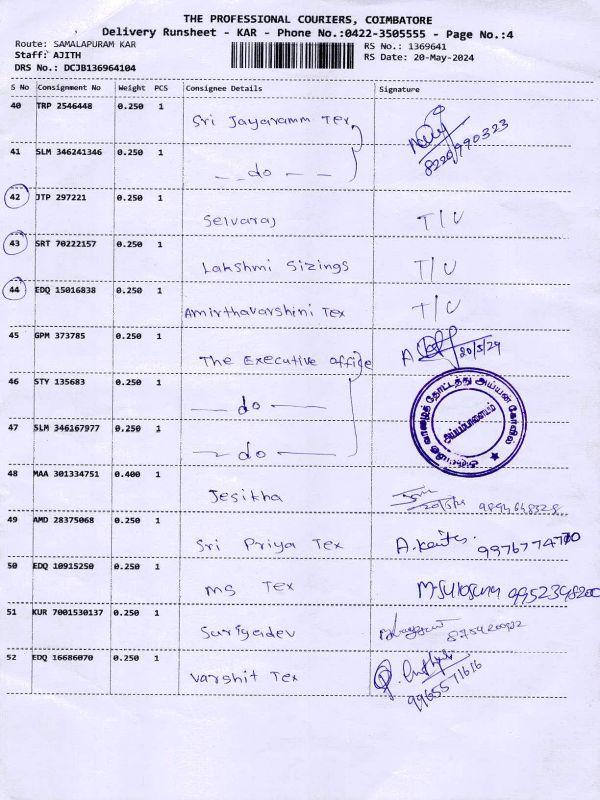 THE PROFESSIONAL COURIERS, COIMBATORE
Delivery Runsheet - KAR - Phone No.:0422-3505555 - Page No.:4
Route: SAMALAPURAM KAR
RS No.: 1369641
Staff: AJITH
RS Date: 20-May-2024
DRS No.: DCJB136964104
S No Consignment No Weight PCS Consignee Details Signature
40 TRP 2546448 0.250 1 Sri Jayaramm Tex
8220990323
41 SLM 346241346 0.250 1 do
42 JTP 297221 0.250 1 Selvaraj T/U
43 SRT 70222157 0.250 1 Lakshmi Sizings T/U
44 EDQ 15016838 0.250 1 Amirthavarshini Tex T/U
45 GPM 373785 0.250 1 The Executive office A 20/5/24
46 STY 135683 0.250 1 do
47 SLM 346167977 0.250 1 do
அய்யம்பாளையம்
48 MAA 301334751 0.400 1 Jesikha 20/5/24
49 AMD 28375068 0.250 1 Sri Priya Tex
50 EDQ 10915250 0.250 1 MS Tex 9952398200
51 KUR 7001530137 0.250 1 Suriyadev
52 EDQ 16686070 0.250 1 Varshit Tex
9965571616